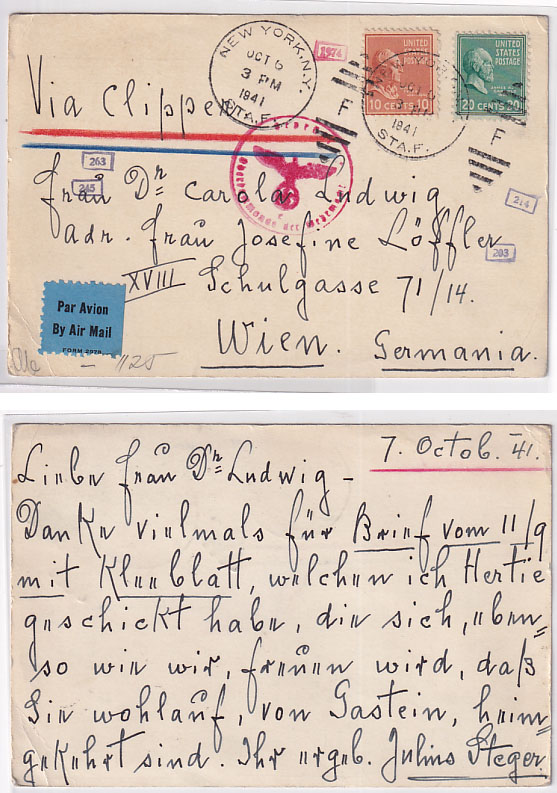 Via Clipper
NEW YORK, N.Y.
OCT 6
3 PM
1941
STA. F.
1974
UNITED STATES POSTAGE
10 CENTS 10
UNITED STATES POSTAGE
20 CENTS 20
1941
STA. F.
F
F
263
245
214
203
Oberkommando der Wehrmacht
Frau Dr. Carola Ludwig
adr. Frau Josefine Löffler
XVIII Schulgasse 71/14.
Wien. Germania.
Par Avion
By Air Mail
FORM 2978
1125
7. Octob. 41.
Liebe Frau Dr. Ludwig -
Danke vielmals für Brief vom 11/9
mit Kleeblatt, welchen ich Hertie
geschickt habe, die sich, eben=
so wie wir, freuen wird, daß
Sie wohlauf, von Gastein, heim=
gekehrt sind. Ihr ergeb. Julius Steger.